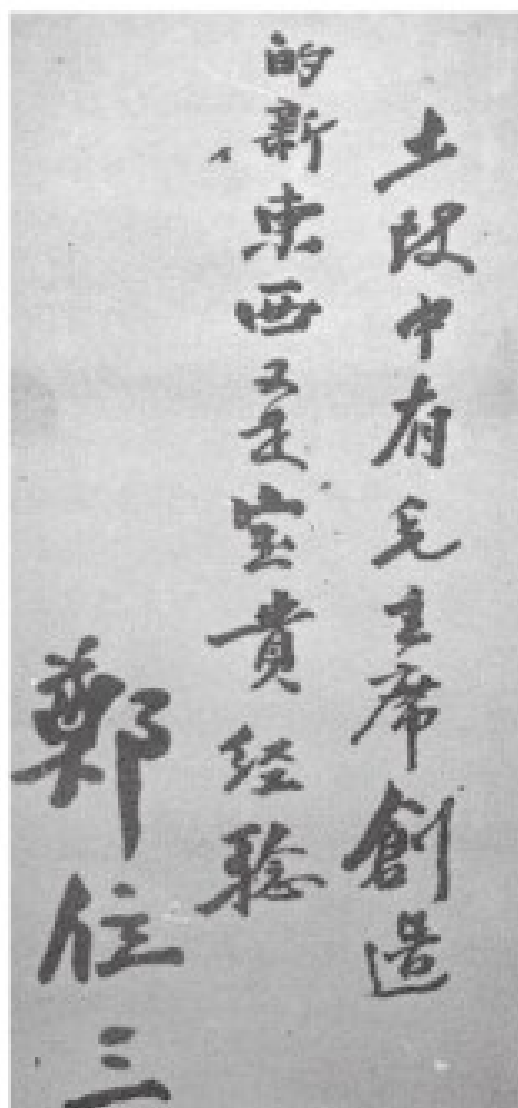 土改中有毛主席創造
的新東西是宝貴經驗
鄭位三